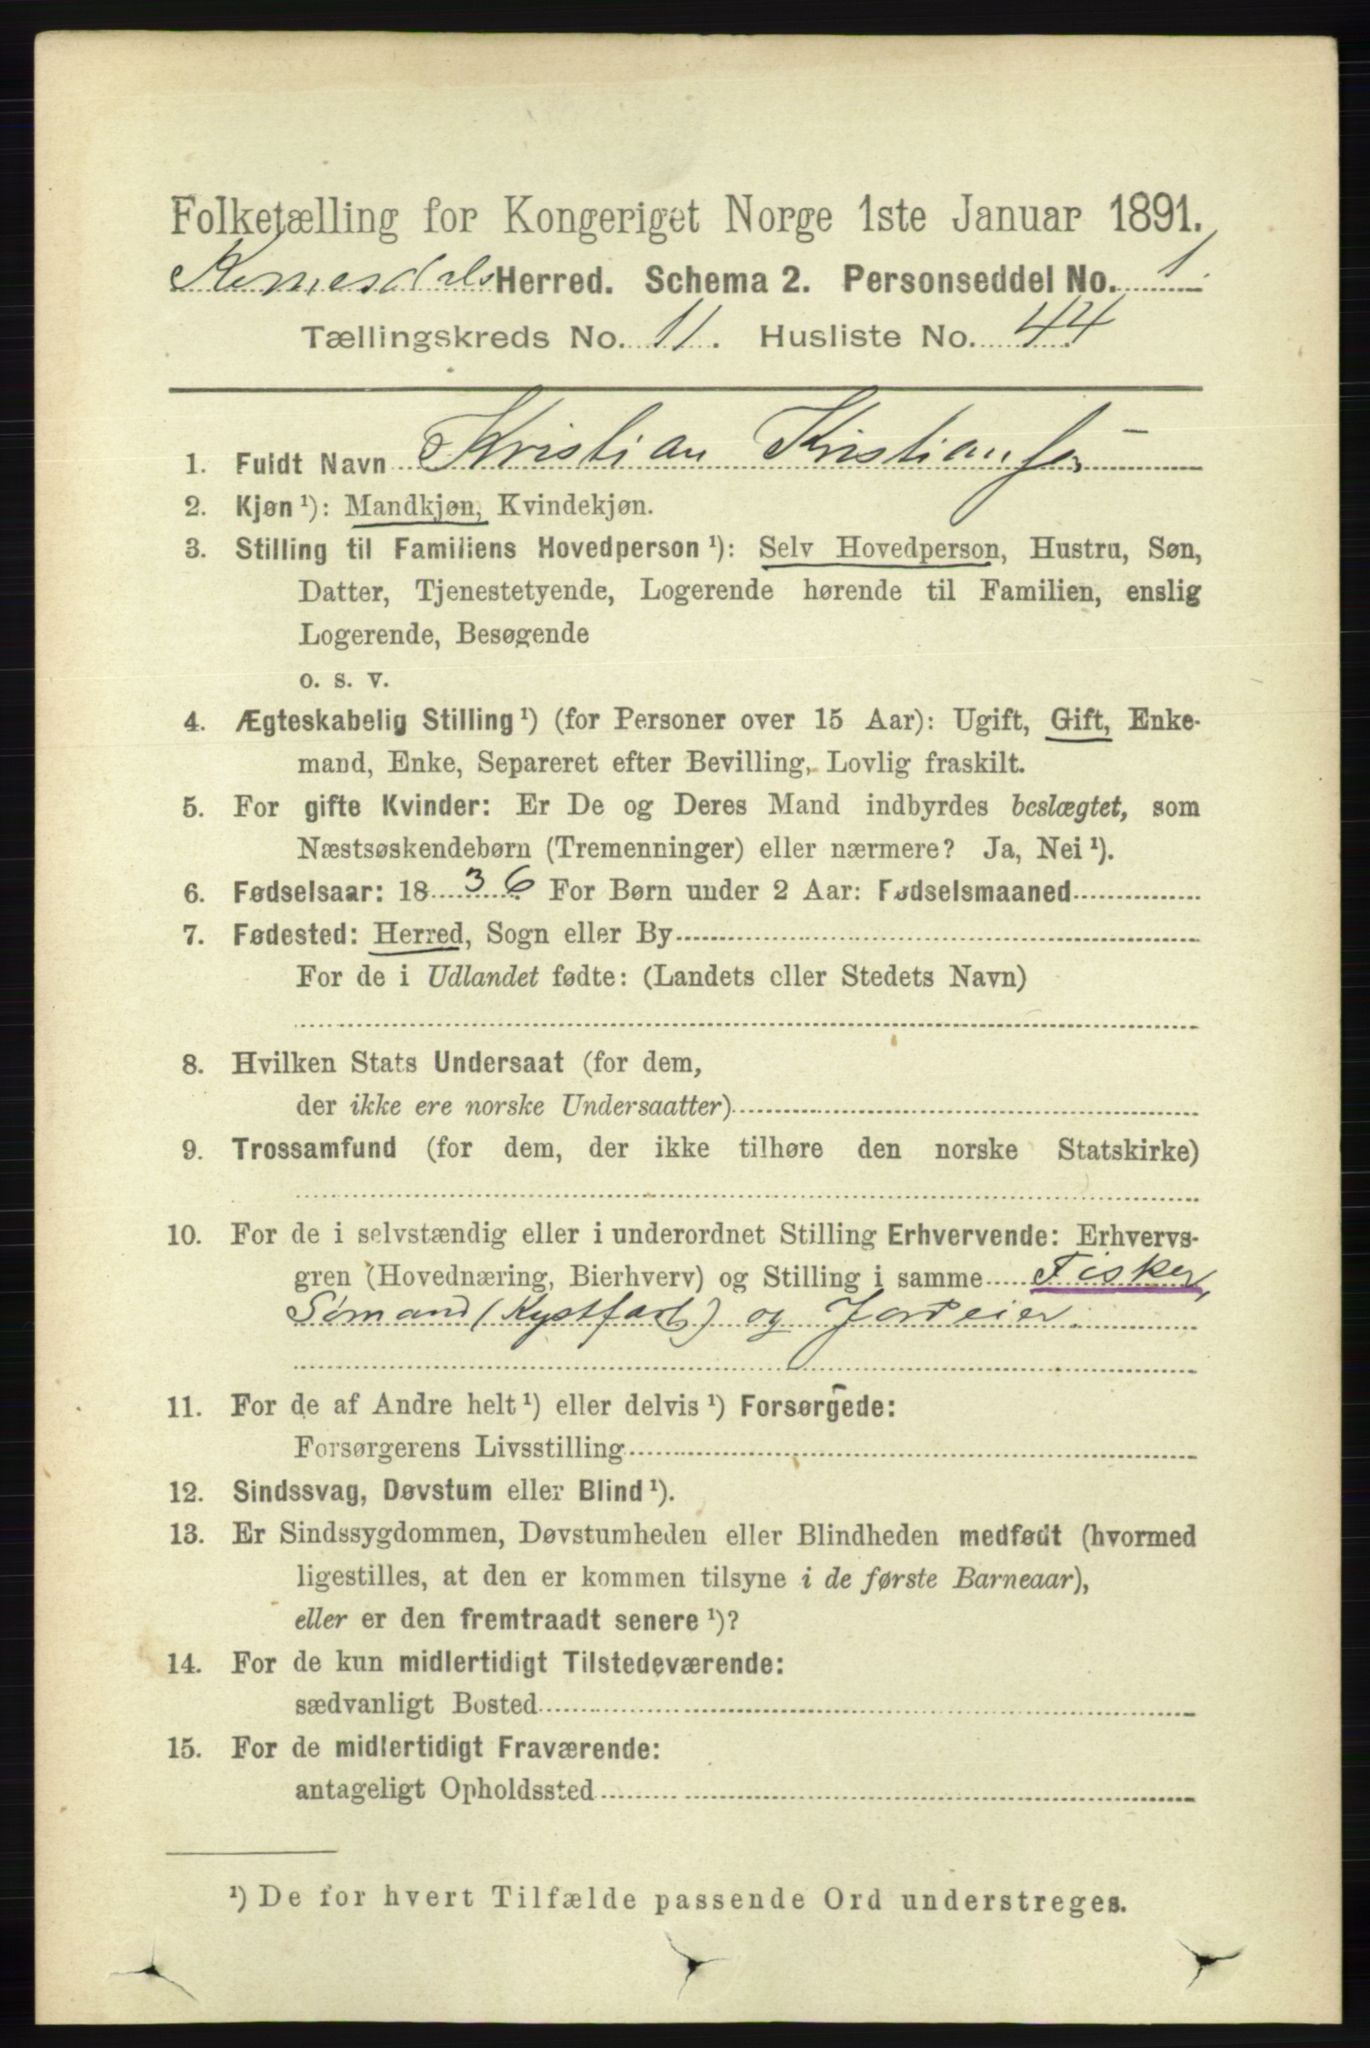 Folketælling for Kongeriget Norge 1ste Januar 1891.
Remesdals Herred. Schema 2. Personseddel No. 1.
Tællingskreds No. 11. Husliste No. 44
1. Fuldt Navn Kristian Kristiansen
2. Kjøn ¹): Mandkjøn, Kvindekjøn.
3. Stilling til Familiens Hovedperson ¹): Selv Hovedperson, Hustru, Søn,
Datter, Tjenestetyende, Logerende hørende til Familien, enslig
Logerende, Besøgende
o. s. v.
4. Ægteskabelig Stilling ¹) (for Personer over 15 Aar): Ugift, Gift, Enke-
mand, Enke, Separeret efter Bevilling, Lovlig fraskilt.
5. For gifte Kvinder: Er De og Deres Mand indbyrdes beslægtet, som
Næstsøskendebørn (Tremenninger) eller nærmere? Ja, Nei ¹).
6. Fødselsaar: 1836 For Børn under 2 Aar: Fødselsmaaned
7. Fødested: Herred, Sogn eller By
For de i Udlandet fødte: (Landets eller Stedets Navn)
8. Hvilken Stats Undersaat (for dem,
der ikke ere norske Undersaatter)
9. Trossamfund (for dem, der ikke tilhøre den norske Statskirke)
10. For de i selvstændig eller i underordnet Stilling Erhvervende: Erhvervs-
gren (Hovednæring, Bierhverv) og Stilling i samme Fisker,
Sømand (Kystfart) og Jordeier.
11. For de af Andre helt ¹) eller delvis ¹) Forsørgede:
Forsørgerens Livsstilling
12. Sindssvag, Døvstum eller Blind ¹).
13. Er Sindssygdommen, Døvstumheden eller Blindheden medfødt (hvormed
ligestilles, at den er kommen tilsyne i de første Barneaar),
eller er den fremtraadt senere ¹)?
14. For de kun midlertidigt Tilstedeværende:
sædvanligt Bosted
15. For de midlertidigt Fraværende:
antageligt Opholdssted
¹) De for hvert Tilfælde passende Ord understreges.